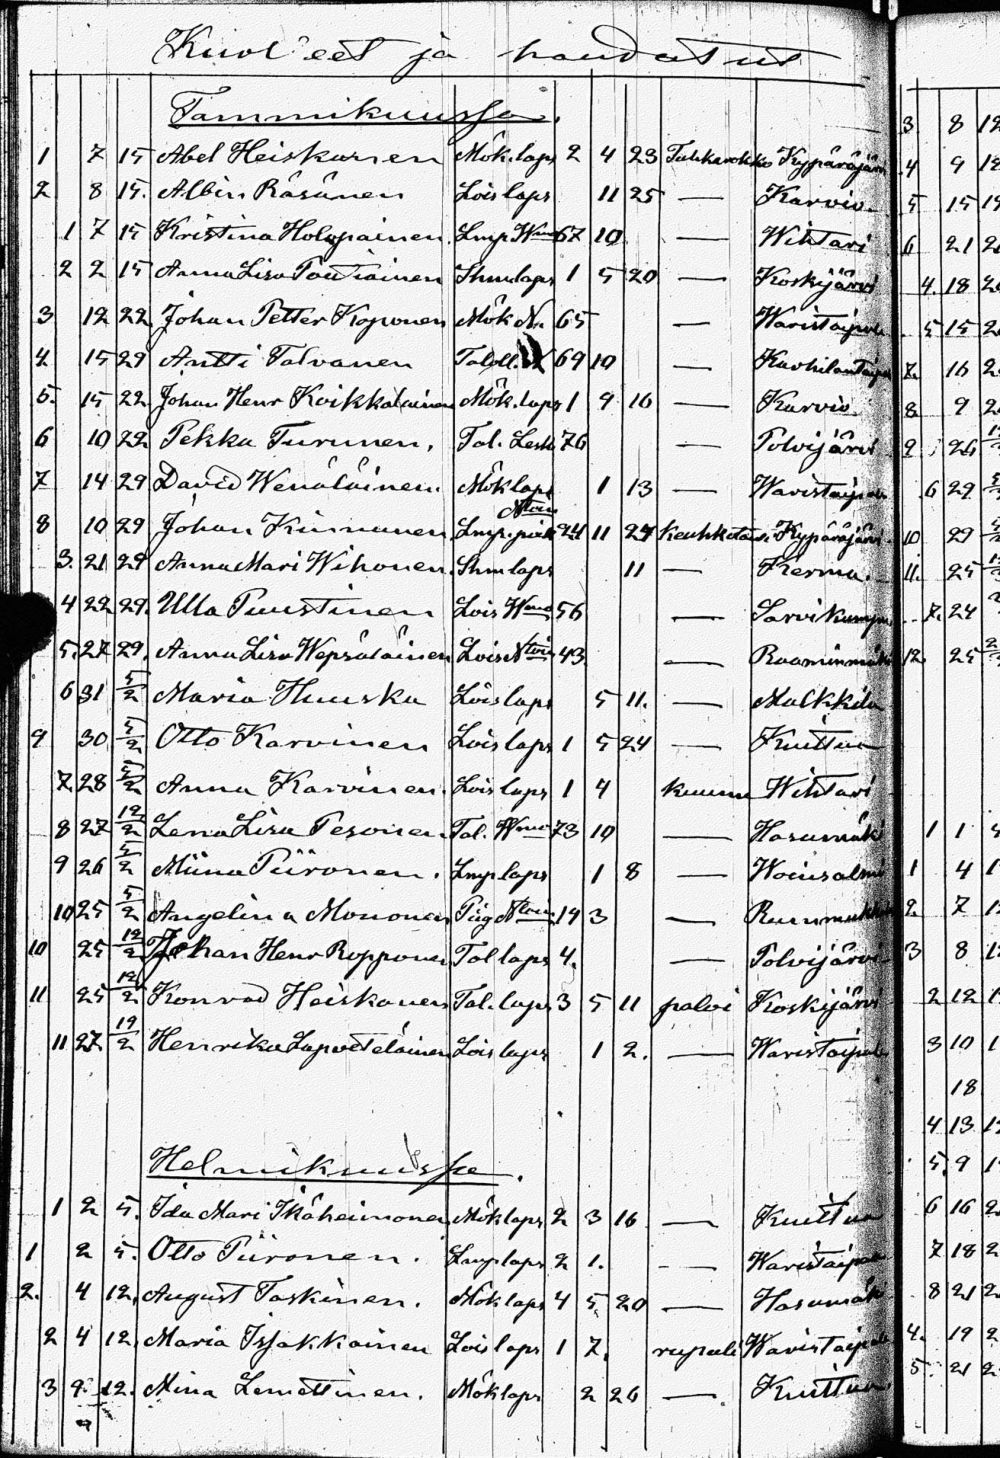 Kuol'eet ja haudatut
Tammikuussa.
1 7 15 Abel Heiskanen Mök. laps 2 4 23 Tuhkarokko Kypäräjärvi
2 8 15. Albin Räsänen Lois laps 11 25 — Karvio
1 7 15 Kristina Holopainen Lmp. Wmo 67 10 — Wihtari
2 2 15 Anna Lisa Poutiainen Shm laps 1 5 20 — Koskijärvi
3 12 22 Johan Petter Koponen Mök 65 — Waristaipale
4 15 29 Antti Talvanen Taloll. 69 10 — Kavhilantaipa
5. 15 22 Johan Henr Koikkalainen Mök. laps 1 9 16 — Karvio
6 10 22 Pekka Turunen. Tal. Leski 76 — Polvijärvi
7 14 29 David Wenäläinen Mök laps 1 13 — Waristaipale
8 10 29 Johan Kinnunen Lmp. poik Ntoin 24 11 24 Keuhkotaut. Kypäräjärvi
3. 21 29 Anna Mari Wihonen. Shm laps 11 — Kerma.
4 22 29. Ulla Puustinen Lois Wmo 56 — Sarvikumpu
5. 27 29. Anna Lisa Wepsäläinen Lois Ntoin 43 — Raaminmäki
6 31 5/2 Maria Huuska Lois laps 5 11. — Malkkila
9 30 5/2 Otto Karvinen Lois laps 1 5 24 — Kuittua
7. 28 5/2 Anna Karvinen. Lois laps 1 4 kuume Wihtari
8 27 12/2 Lena Lisa Pesonen Tal. Wmo 73 10 — Hasumäki
9 26 5/2 Miina Piironen. Lmp laps 1 8 — Woinsalmi
10 25 5/2 Angelina Mononen Piig Ntoin 14 3 — Ruunmukk
10 25 12/2 Johan Henr Ropponen Tal laps 4. — Polvijärvi
11 25 12/2 Konrad Heiskanen Tal. laps 3 5 11 palvi Koskijärvi
11 27 19/2 Henrika Lapveteläinen Lois laps 1 2. — Waristaipale
Helmikuussa.
1 2 5. Ida Mari Ikäheimonen Mök laps 2 3 16 — Kuittua
1 2 5. Otto Piironen. Lmp laps 2 1. — Waristaipale
2. 4 12. August Taskinen. Mök laps 4 5 20 — Hasumäki
2 4 12. Maria Isjakkainen Lois laps 1 7. rupuli Waristaipale
3 9. 12. Mina Lemettinen. Mök laps 2 26 — Kuittua.
3 8 12
4 9 12
5 15 19
6 21 2
4. 18 2
5 15 2
7. 16 2
8. 9 2
9 26
6 29
10 29
11. 25
7. 24
12. 25
1 1 5
1 4 1
2. 7 1
3 8 1
2 12 1
3 10 1
18
4 13 1
5. 9 1
6 16 2
7 18 2
8 21 2
4. 19 2
5 21 2